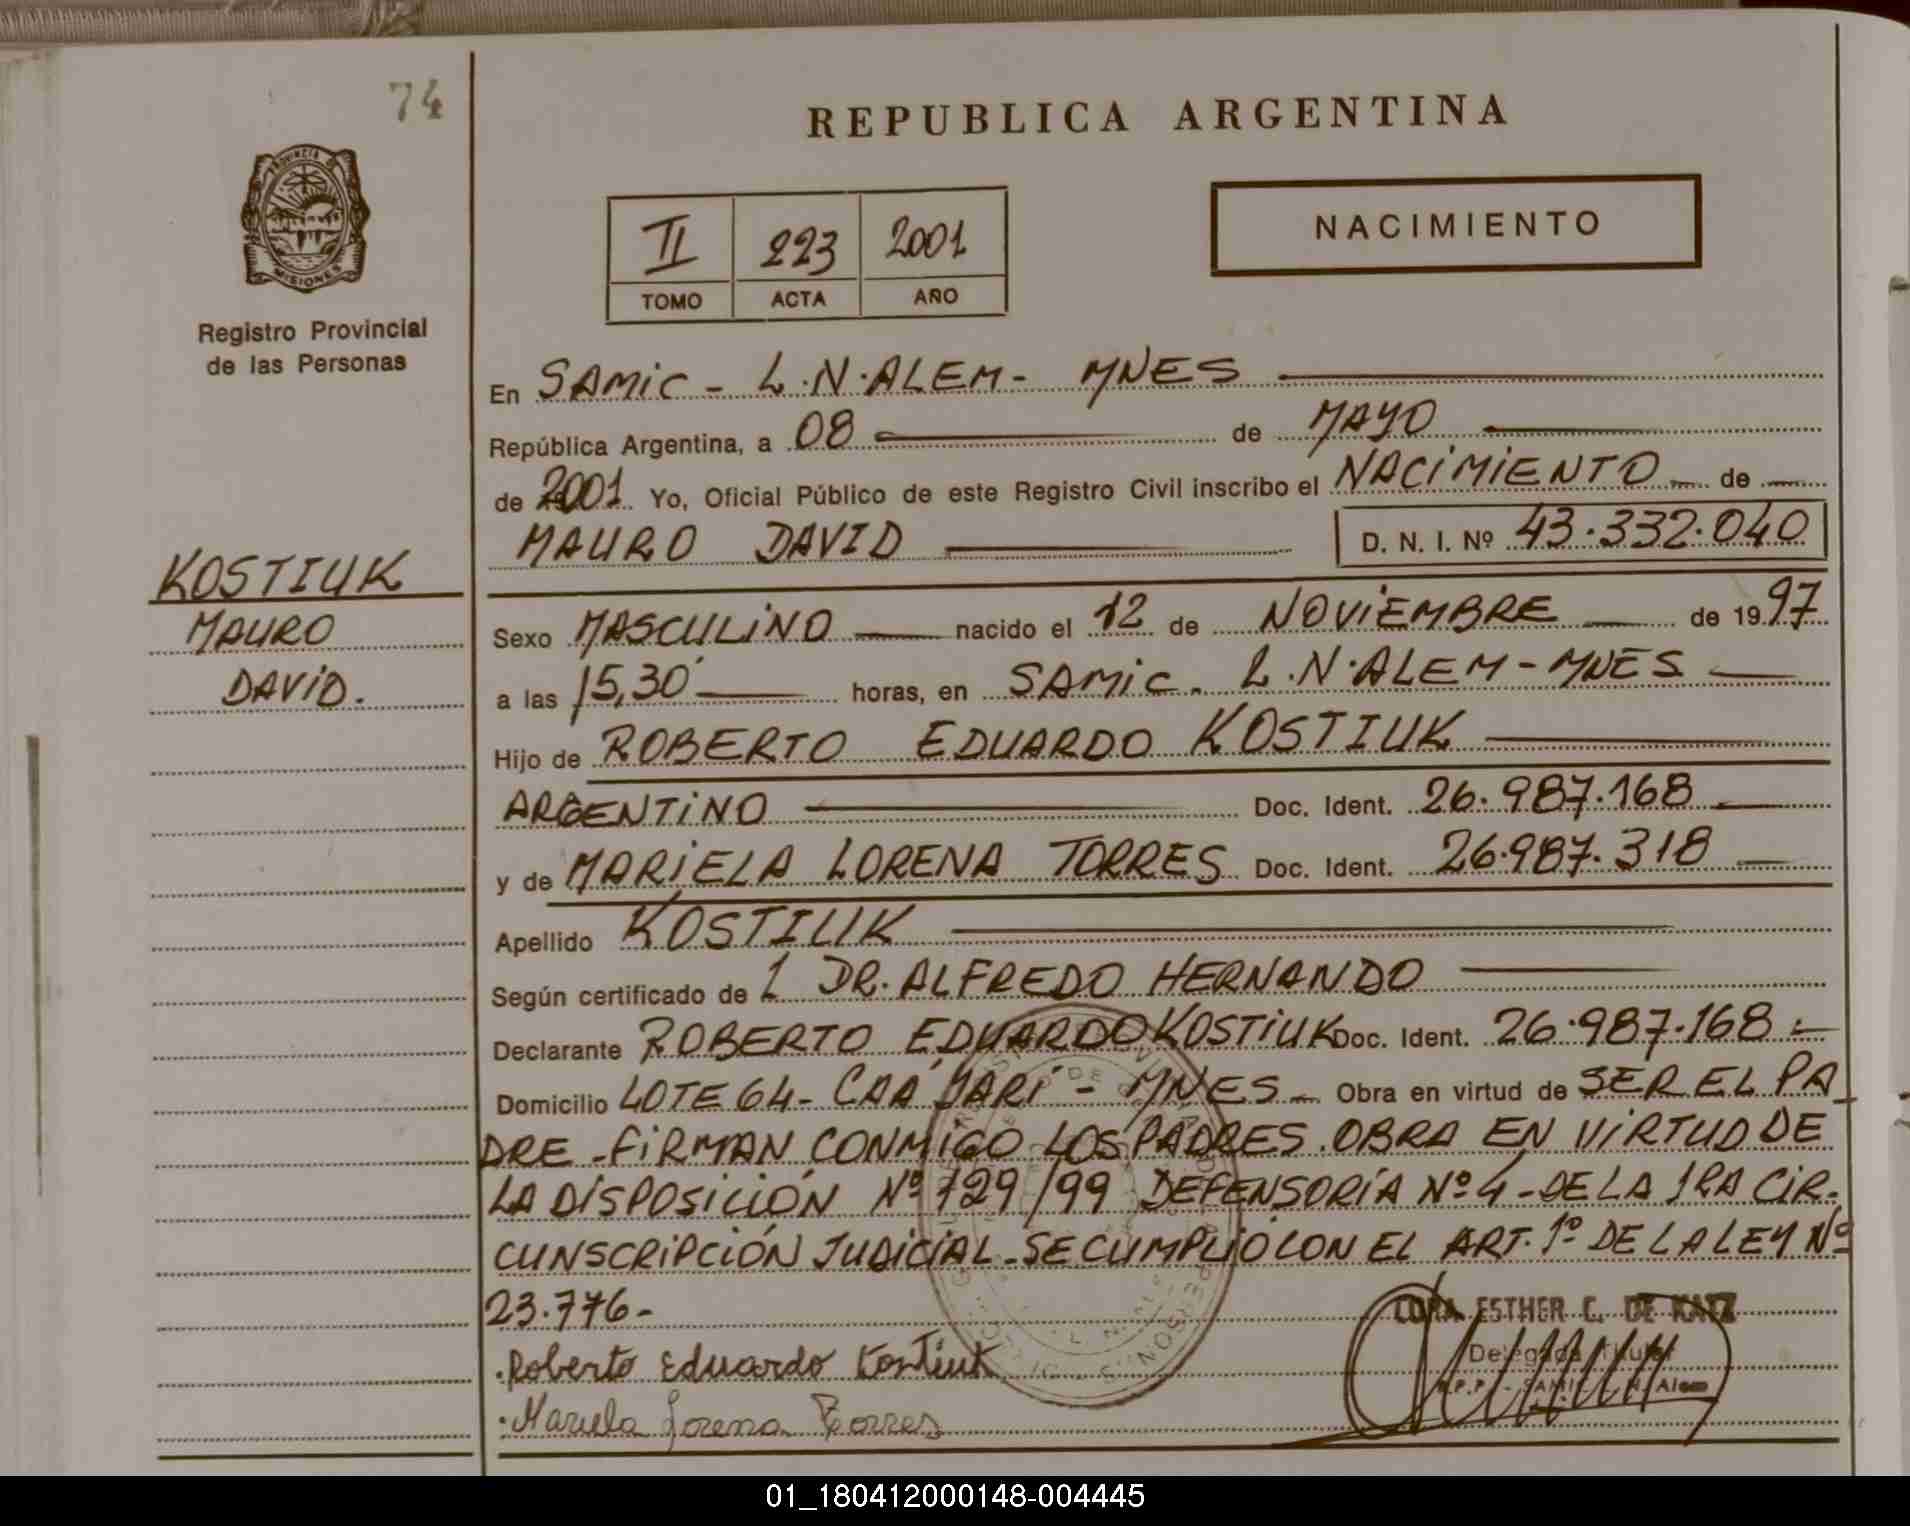 74
REPUBLICA ARGENTINA
PROVINCIA DE
MISIONES
Registro Provincial
de las Personas
II 223 2001
TOMO ACTA AÑO
NACIMIENTO
En SAMIC - L.N.ALEM - MNES
República Argentina, a 08 de MAYO
de 2001 Yo, Oficial Público de este Registro Civil inscribo el NACIMIENTO de
MAURO DAVID D. N. I. Nº 43.332.040
KOSTIUK
MAURO
DAVID.
Sexo MASCULINO nacido el 12 de NOVIEMBRE de 1997
a las 15,30 horas, en SAMIC - L.N.ALEM - MNES
Hijo de ROBERTO EDUARDO KOSTIUK
ARGENTINO Doc. Ident. 26.987.168
y de MARIELA LORENA TORRES Doc. Ident. 26.987.318
Apellido KOSTIUK
Según certificado de 1 DR. ALFREDO HERNANDO
Declarante ROBERTO EDUARDO KOSTIUK Doc. Ident. 26.987.168
Domicilio LOTE 64 - CAA YARÍ - MNES - Obra en virtud de SER EL PA
DRE - FIRMAN CONMIGO LOS PADRES. OBRA EN VIRTUD DE
LA DISPOSICIÓN Nº 729/99 DEFENSORÍA Nº 4 - DE LA 1RA CIR-
CUNSCRIPCIÓN JUDICIAL - SE CUMPLIÓ CON EL ART. 1º DE LA LEY Nº
23.776 -
LORA ESTHER C. DE KATZ
Delegada Titular
R.P.P. - SAMIC L.N. Alem
Roberto Eduardo Kostiuk
Mariela Lorena Torres
01_180412000148-004445